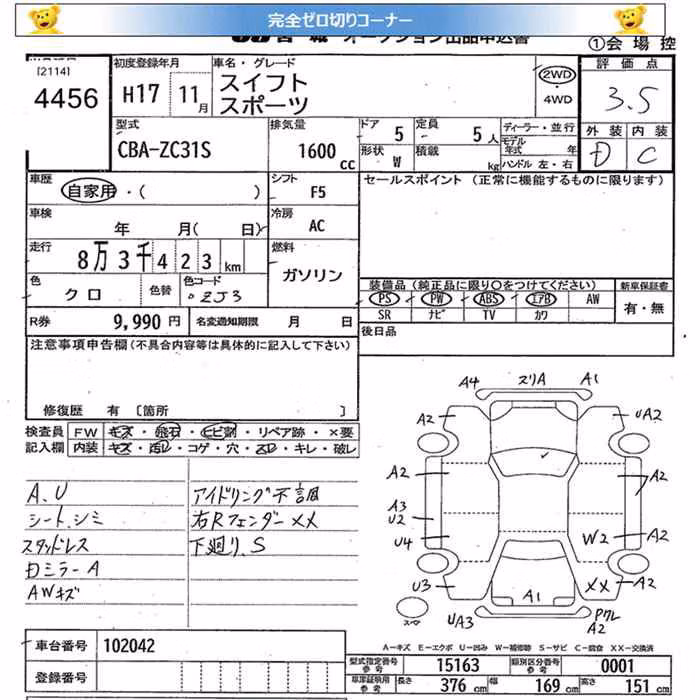 完全ゼロ切りコーナー
①会場控
[2114]
4456
初度登録年月
H17 11月
車名・グレード
スイフト
スポーツ
2WD
・
4WD
評価点
3.5
外装 内装
D C
型式
CBA-ZC31S
排気量
1600 cc
ドア 5
定員 5人
形状 W
積載 kg
ディーラー・並行
モデル年式 年
ハンドル 左・右
車歴
自家用・( )
シフト
F5
セールスポイント (正常に機能するものに限ります)
車検
年 月( 日)
冷房
AC
走行
8万3千423km
燃料
ガソリン
色
クロ
色替
色コード
ZJ3
装備品(純正品に限り○をつけてください)
新車保証書
PS PW ABS エアB AW
有・無
SR ナビ TV カワ
R券 9,990円
名変通知期限 月 日
後日品
注意事項申告欄(不具合内容等は具体的に記入して下さい)
修復歴 有 [箇所 ]
検査員 FW キズ・飛石・ヒビ割・リペア跡・×要
記入欄 内装 キズ・汚レ・コゲ・穴・スレ・キレ・破レ
A、U
シート、シミ
スタッドレス
Dミラー A
AWキズ
アイドリング不調
右Rフェンダー××
下廻り、S
A4 スリA A1
A2 UA2
A2 A2
A3
U2
U4 W2 A2
U3 ×× A2
A1
UA3 ワレ
A2
スペア
A-キズ E-エクボ U-凹み W-補修跡 S-サビ C-腐食 XX-交換済
車台番号 102042
登録番号
型式指定番号 参考 15163 類別区分番号 参考 0001
車庫証明用 参考 長さ 376 cm 幅 169 cm 高さ 151 cm